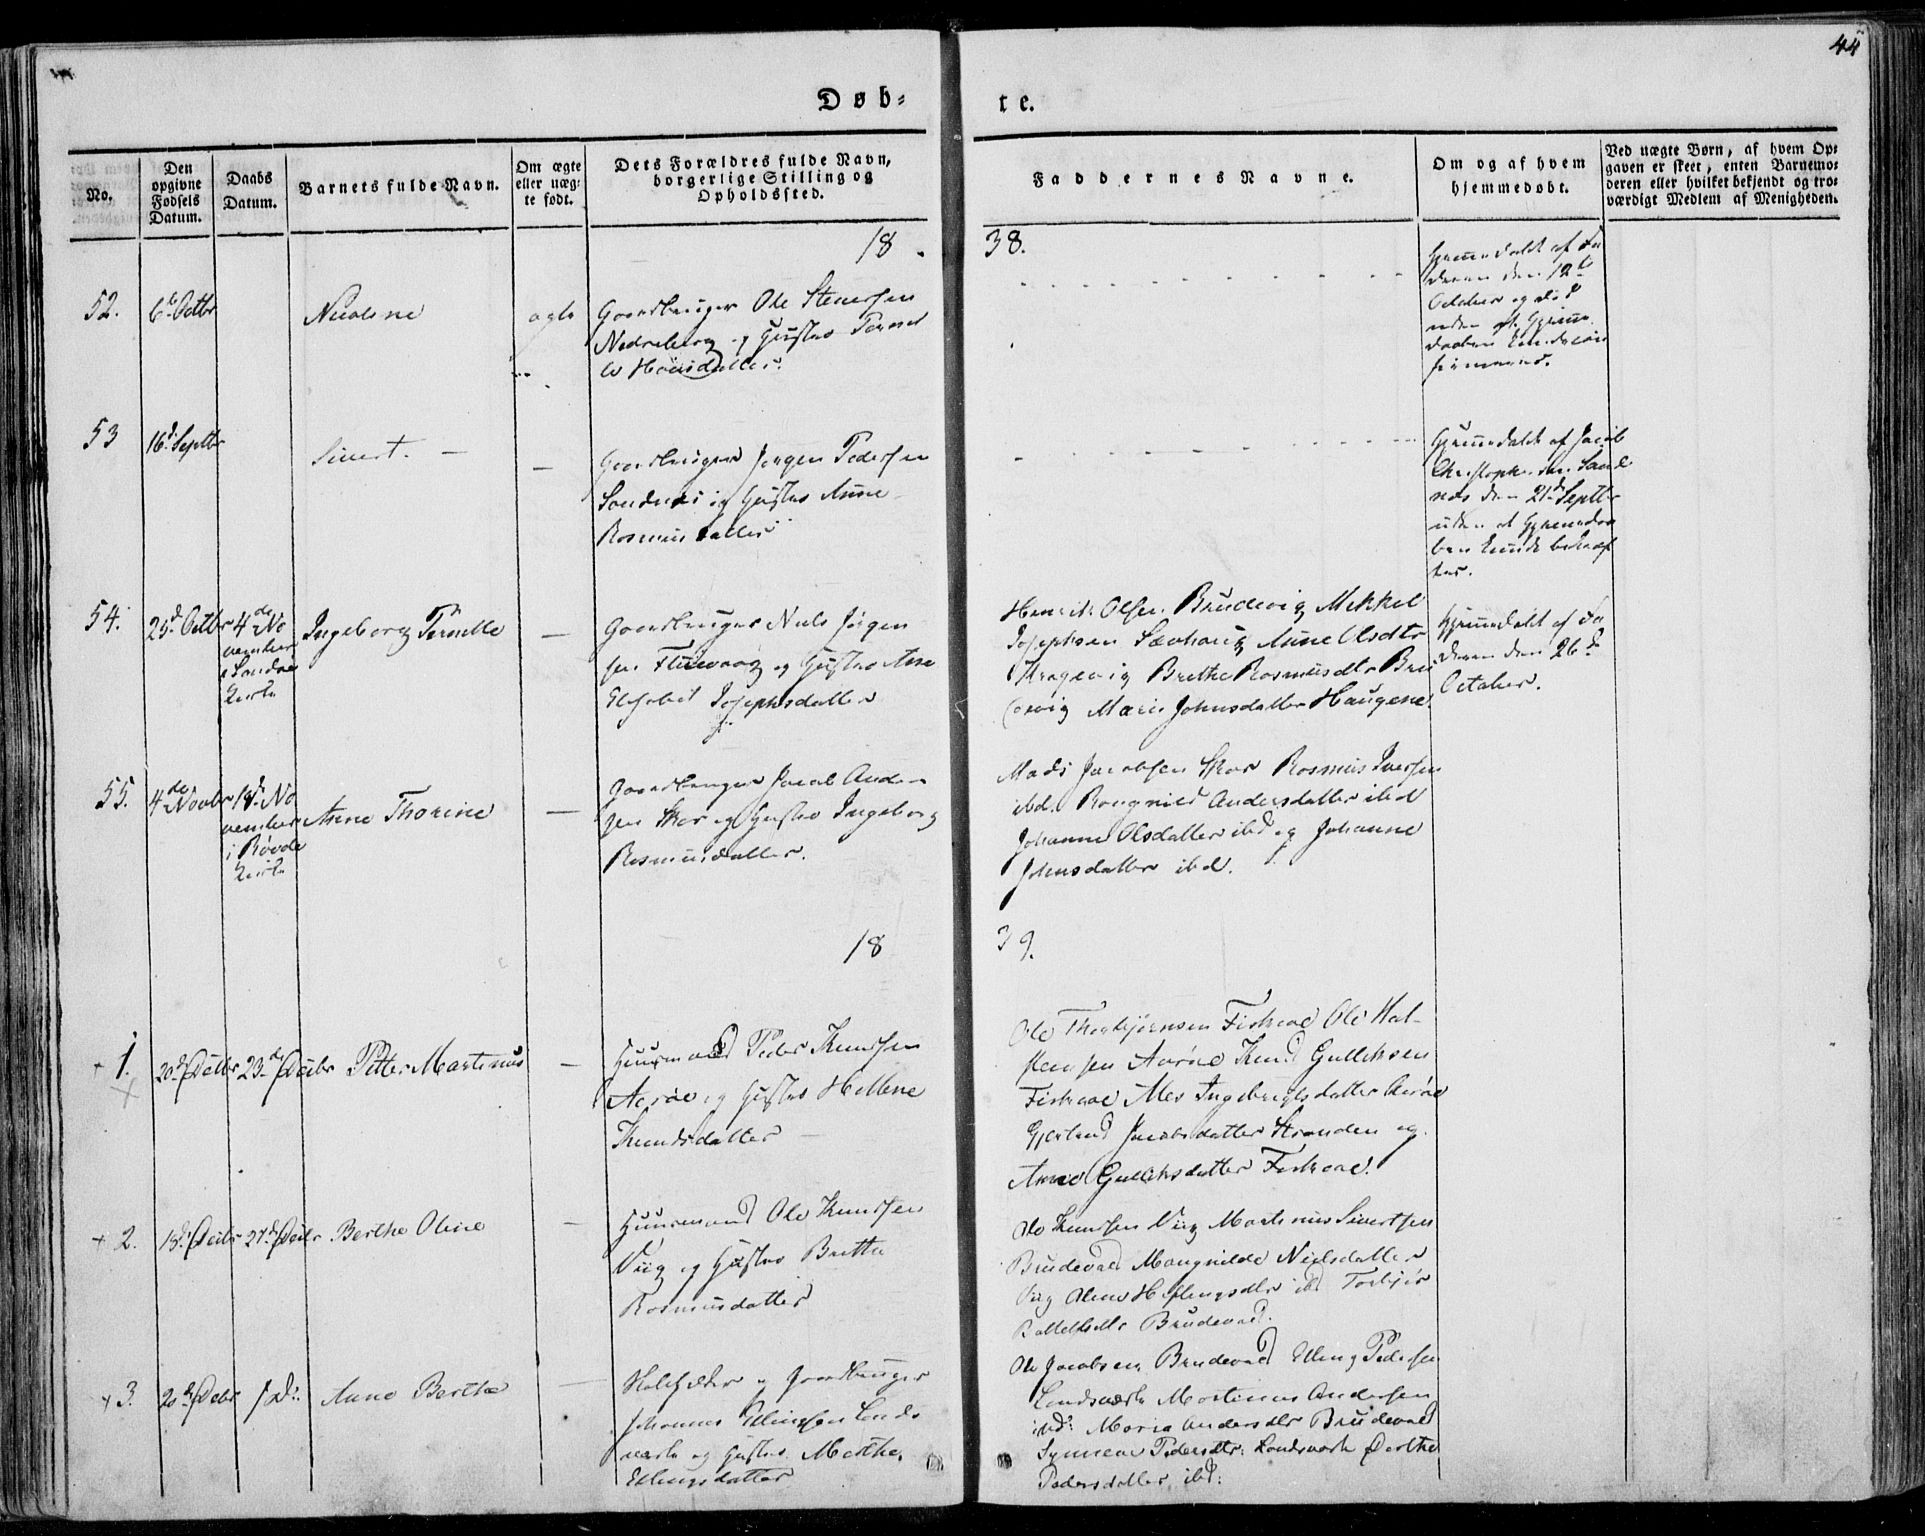 44
Døb-
te.
No.
Den
opgivne
Fødsels
Datum.
Daabs
Datum.
Barnets fulde Navn.
Om ægte
eller uæg-
te født.
Dets Forældres fulde Navn,
borgerlige Stilling og
Opholdssted.
Faddernes Navne.
Om og af hvem
hjemmedøbt.
Ved uægte Børn, af hvem Op-
gaven er skeet, enten Barnemo-
deren eller hvilket bekjendt og tro-
værdigt Medlem af Menigheden.
18
38.
52.
6te Octbr
Nicoline
ægte
Gaardbruger Ole
og Hustro
Hjemmedøbt af Fa
deren den 12te
October og
uden at Hjemme
daaben kunde con
firmeres.
53
16d Septbr
Sivert. —
—
Gaardbruger Jørgen Peders en
Sandnæs og Hustro Anne
Rasmusdatter
Hjemmedøbt af Jacob
Sand
næs den 21de Septbr
uden at Hjemmedaa
ben kunde bekræf
tes.
54.
25d Octbr
4de No
vember
Sandnæs
Kirke
Ingeborg Pernelle
—
Gaardbruger Niels Jørgen
sen og Hustro Ane
Elisabet Josephsdatter
Henrik Olsen Brudevig Mikkel
Josephsen Anne Olsdtr
Kragevig Brethe Rasmusdtr Bru
devig Marie Johnsdatter Haugene
Hjemmedøbt af Fa
deren den 26d
October.
55.
4de Novbr
18d No
vember
i Røvde
Kirke
Anne Thorine
—
Gaardbruger Jacob Ander
sen Skor og Hustro Ingeborg
Rasmusdatter.
Mads Jacobsen Skor Rasmus Iversen
ibd. Raugnild Andersdatter ibd
Johanne Olsdatter ibd og Johanne
Johnsdatter ibd.
18
39.
+ 1.
20d Decbr
23de Decbr
Petter Martinus
—
Huusmand Peder Knudsen
Aarøe og Hustro Hellene
Knudsdatter —
Ole Thorbjørnsen Fiskaae Ole Hal-
stensen Aarøe Knud Gulliksen
Fiskaae Ingebrigtsdatter Aarøe
Gjertrud Jacobsdatter Stranden og
Anne Gulliksdatter Fiskaae.
+ 2.
15d Decbr
27d Decbr
Berthe Oline
—
Huusmand Ole Knudsen
Viig og Hustro Brette
Rasmusdatter
Ole Knudsen Viig Martinus Sivertsen
Brudevad Maugnilde Nielsdatter
Viig Oline ibd Torbjør
Brudevad.
+ 3.
20d Decbr
d
Anne Berthe
—
og Gaardbruger
Johannes Ellingsen Lands
værk og Hustro Marthe
Ellingsdatter
Ole Jacobsen Brudevad Elling Pedersen
Landsværk Martinus Andersen
ibd: Maria Andersdtr Brudevad
Synneve Pedersdtr: Landsværk Berthe
Pedersdatter ibd: